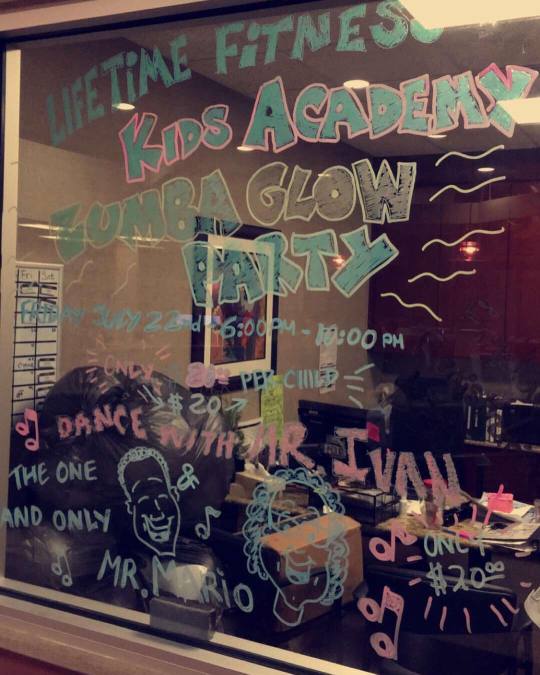 LIFETIME FITNESS
KIDS ACADEMY
ZUMBA GLOW
PARTY
FRIDAY JULY 22nd 6:00PM - 10:00 PM
ONLY PER CHILD
$20
DANCE WITH MR. IVAN
THE ONE &
AND ONLY
MR. MARIO
ONLY
$20.00
Fri Sat